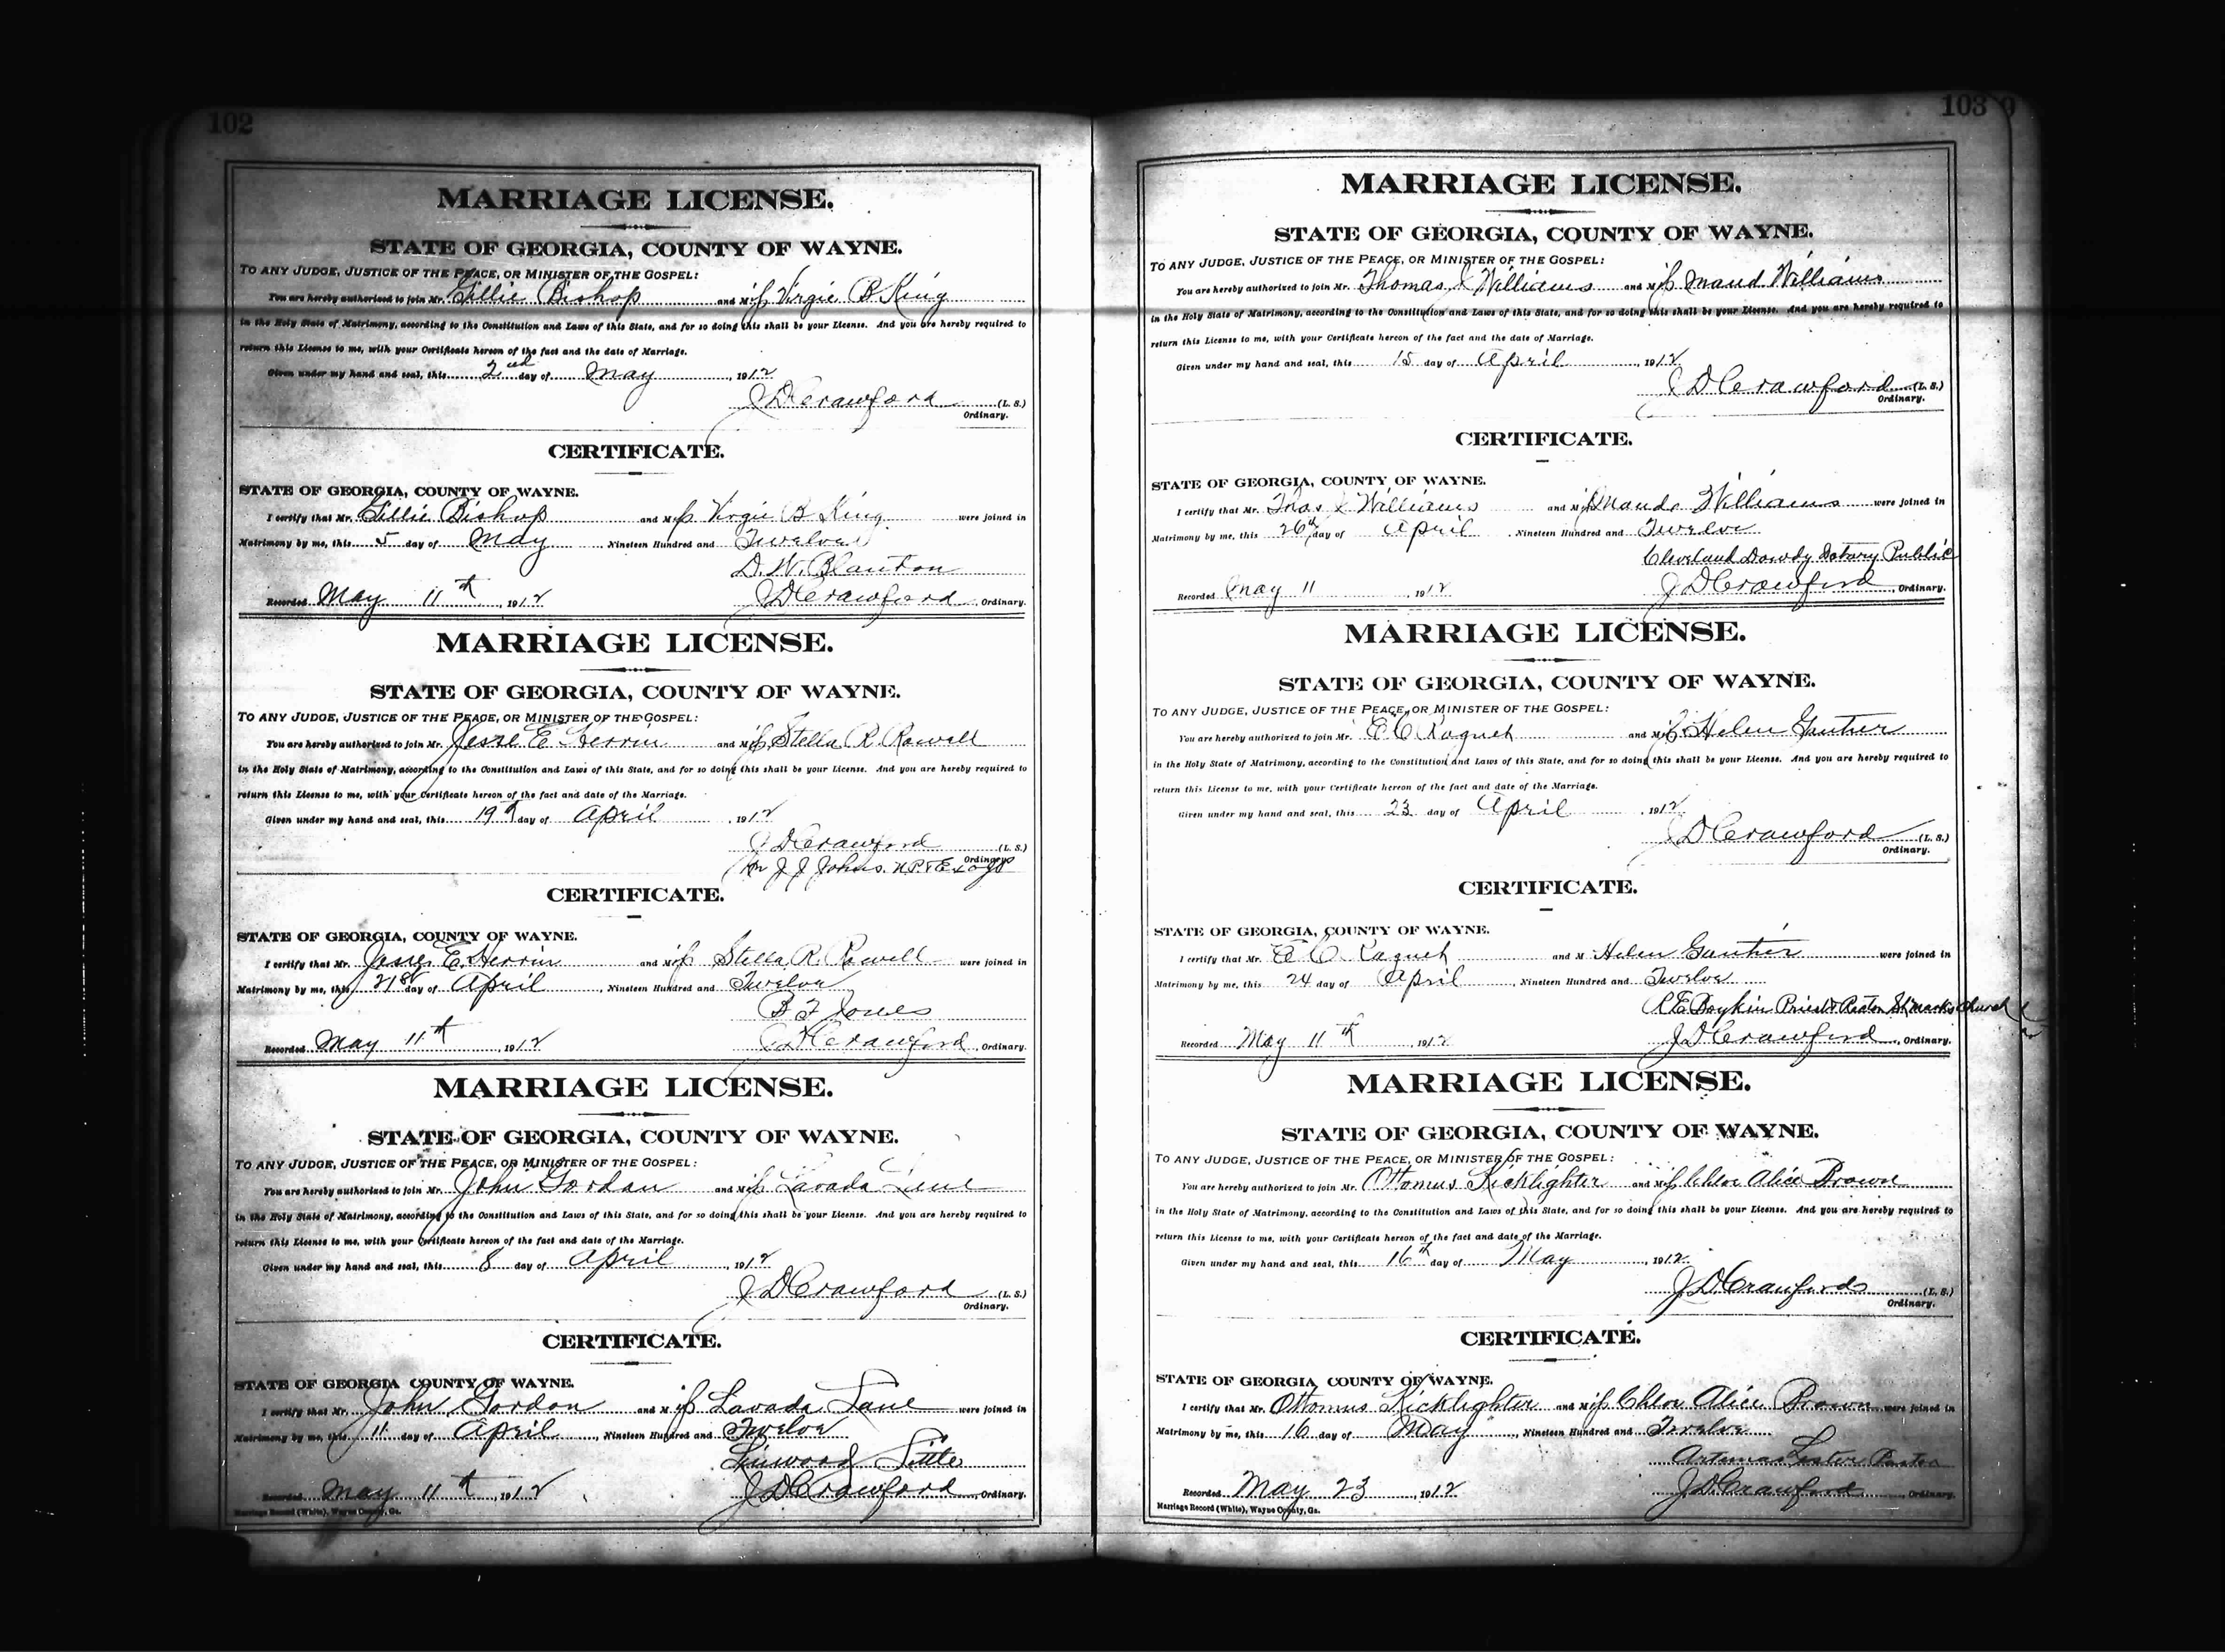 102
MARRIAGE LICENSE.
STATE OF GEORGIA, COUNTY OF WAYNE.
TO ANY JUDGE, JUSTICE OF THE PEACE, OR MINISTER OF THE GOSPEL:
You are hereby authorized to join Mr. Gillie Bishop and Miss Virgie B King
in the Holy State of Matrimony, according to the Constitution and Laws of this State, and for so doing this shall be your License. And you are hereby required to
return this License to me, with your Certificate hereon of the fact and the date of Marriage.
Given under my hand and seal, this 2nd day of May, 1912
J D Crawford (L. S.)
Ordinary.
CERTIFICATE.
STATE OF GEORGIA, COUNTY OF WAYNE.
I certify that Mr. Gillie Bishop and Miss Virgie B King were joined in
Matrimony by me, this 5 day of May, Nineteen Hundred and Twelve
D. W. Blanton
Recorded May 11th, 1912 J D Crawford, Ordinary.
MARRIAGE LICENSE.
STATE OF GEORGIA, COUNTY OF WAYNE.
TO ANY JUDGE, JUSTICE OF THE PEACE, OR MINISTER OF THE GOSPEL:
You are hereby authorized to join Mr. Jesse E Herrin and Miss Stella R. Rowell
in the Holy State of Matrimony, according to the Constitution and Laws of this State, and for so doing this shall be your License. And you are hereby required to
return this License to me, with your Certificate hereon of the fact and date of the Marriage.
Given under my hand and seal, this 19th day of April, 1912
J D Crawford (L. S.)
Ordinary.
J J Johns. N.P. & Ex
CERTIFICATE.
STATE OF GEORGIA, COUNTY OF WAYNE.
I certify that Mr. Jesse E. Herrin and Miss Stella R. Rowell were joined in
Matrimony by me, this 21st day of April, Nineteen Hundred and Twelve
B F Jones
Recorded May 11th, 1912 J D Crawford, Ordinary.
MARRIAGE LICENSE.
STATE OF GEORGIA, COUNTY OF WAYNE.
TO ANY JUDGE, JUSTICE OF THE PEACE, OR MINISTER OF THE GOSPEL:
You are hereby authorized to join Mr. John Gordan and Miss Lavada Lane
in the Holy State of Matrimony, according to the Constitution and Laws of this State, and for so doing this shall be your License. And you are hereby required to
return this License to me, with your Certificate hereon of the fact and date of the Marriage.
Given under my hand and seal, this 8 day of April, 1912
J D Crawford (L. S.)
Ordinary.
CERTIFICATE.
STATE OF GEORGIA COUNTY OF WAYNE.
I certify that Mr. John Gordon and Miss Lavada Lane were joined in
Matrimony by me, this 11 day of April, Nineteen Hundred and Twelve
Linwood Little
Recorded May 11th, 1912 J D Crawford, Ordinary.
Marriage Record (White), Wayne County, Ga.
103
MARRIAGE LICENSE.
STATE OF GEORGIA, COUNTY OF WAYNE.
TO ANY JUDGE, JUSTICE OF THE PEACE, OR MINISTER OF THE GOSPEL:
You are hereby authorized to join Mr. Thomas J Williams and Miss Maud Williams
in the Holy State of Matrimony, according to the Constitution and Laws of this State, and for so doing this shall be your License. And you are hereby required to
return this License to me, with your Certificate hereon of the fact and the date of Marriage.
Given under my hand and seal, this 15 day of April, 1912
J D Crawford (L. S.)
Ordinary.
CERTIFICATE.
STATE OF GEORGIA, COUNTY OF WAYNE.
I certify that Mr. Thos J Williams and Miss Maude Williams were joined in
Matrimony by me, this 26th day of April, Nineteen Hundred and Twelve
Cleveland Dowdy Notary Public
Recorded May 11, 1912 J D Crawford, Ordinary.
MARRIAGE LICENSE.
STATE OF GEORGIA, COUNTY OF WAYNE.
TO ANY JUDGE, JUSTICE OF THE PEACE, OR MINISTER OF THE GOSPEL:
You are hereby authorized to join Mr. E C and Miss Helen
in the Holy State of Matrimony, according to the Constitution and Laws of this State, and for so doing this shall be your License. And you are hereby required to
return this License to me, with your Certificate hereon of the fact and date of the Marriage.
Given under my hand and seal, this 23 day of April, 1912
J D Crawford (L. S.)
Ordinary.
CERTIFICATE.
STATE OF GEORGIA, COUNTY OF WAYNE.
I certify that Mr. E C and M Helen were joined in
Matrimony by me, this 24 day of April, Nineteen Hundred and Twelve
R E Boykin Priest & Rector St Marks Church
Recorded May 11th, 1912 J D Crawford, Ordinary.
MARRIAGE LICENSE.
STATE OF GEORGIA, COUNTY OF WAYNE.
TO ANY JUDGE, JUSTICE OF THE PEACE, OR MINISTER OF THE GOSPEL:
You are hereby authorized to join Mr. Ottomus Kicklighter and Miss Chloe Alice Brown
in the Holy State of Matrimony, according to the Constitution and Laws of this State, and for so doing this shall be your License. And you are hereby required to
return this License to me, with your Certificate hereon of the fact and date of the Marriage.
Given under my hand and seal, this 16th day of May, 1912
J. D. Crawford (L. S.)
Ordinary.
CERTIFICATE.
STATE OF GEORGIA COUNTY OF WAYNE.
I certify that Mr. Ottomus Kicklighter and Miss Chloe Alice Brown were joined in
Matrimony by me, this 16 day of May, Nineteen Hundred and Twelve
Artemas Lester Pastor
Recorded May 23, 1912 J. D. Crawford, Ordinary.
Marriage Record (White), Wayne County, Ga.